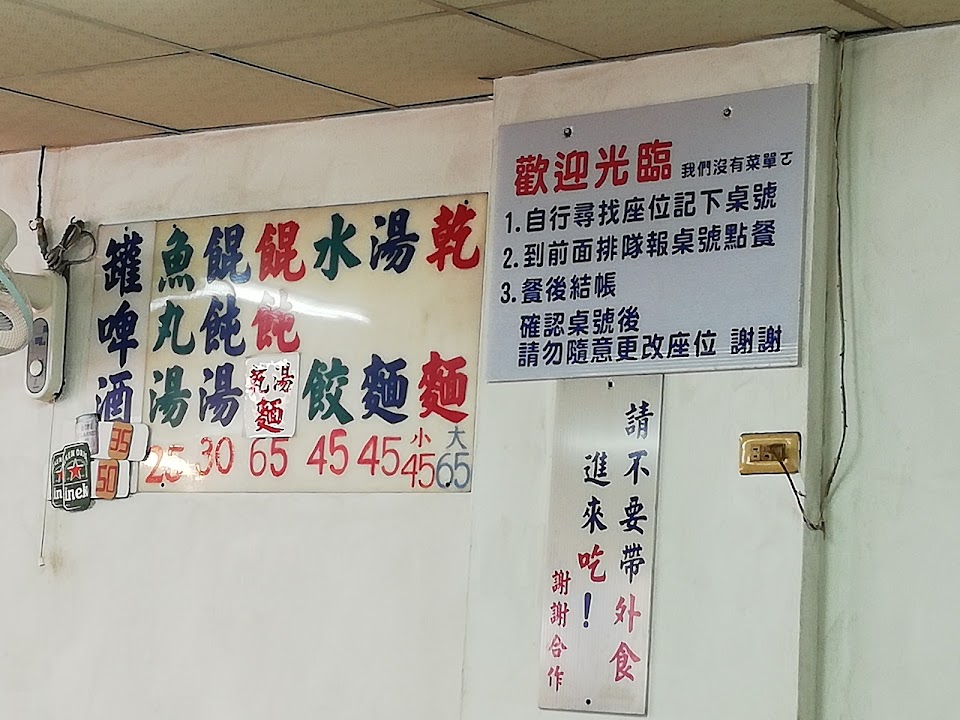 乾麵
小45
大65
湯麵
45
水餃
45
餛飩
乾湯
麵
65
餛飩湯
30
魚丸湯
25
罐啤酒
35
50
歡迎光臨 我們沒有菜單ㄛ
1.自行尋找座位記下桌號
2.到前面排隊報桌號點餐
3.餐後結帳
確認桌號後
請勿隨意更改座位 謝謝
請不要帶外食
進來吃!
謝謝合作